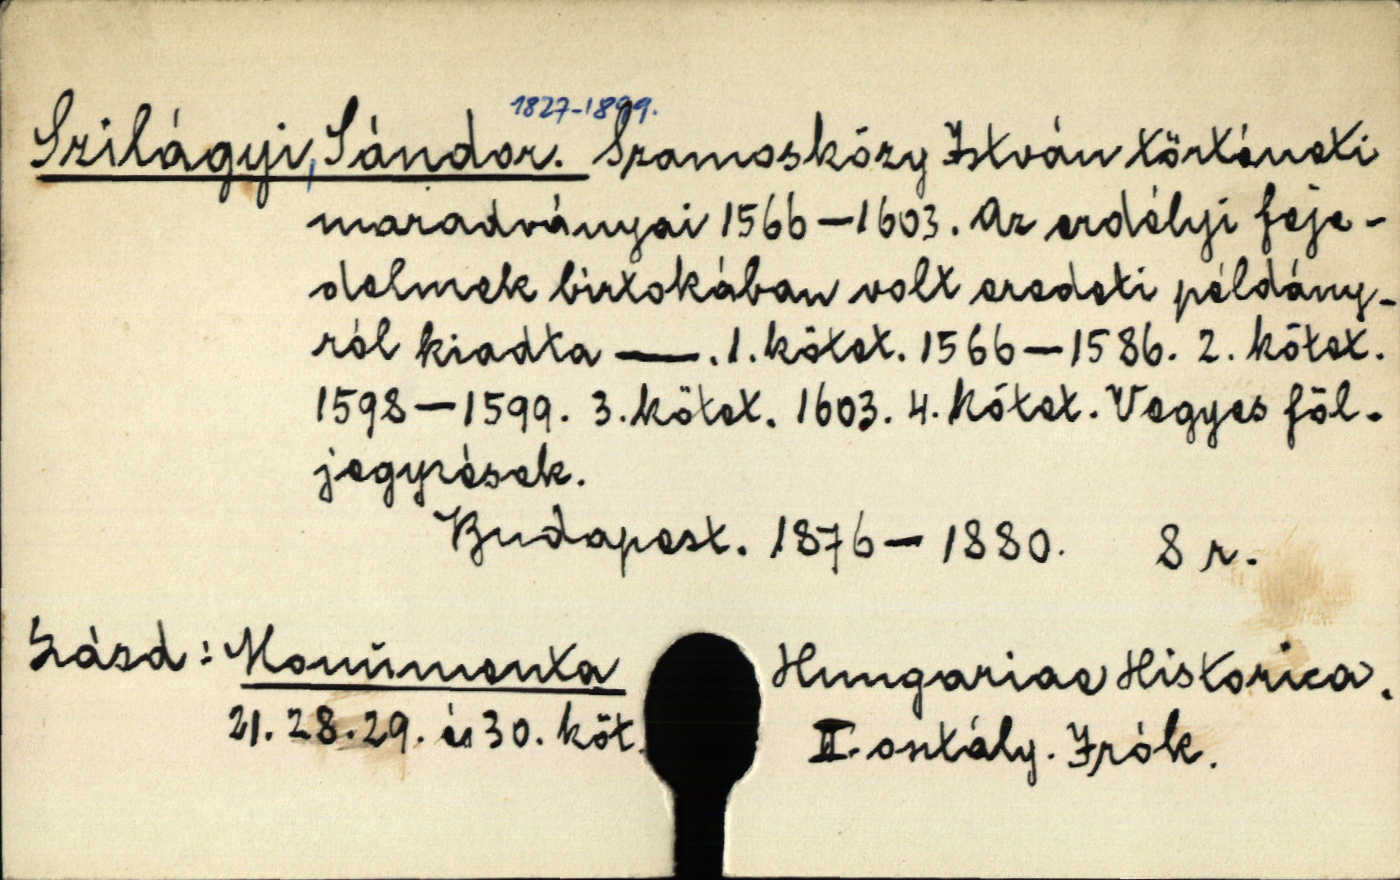 1827-1899.
Szilágyi, Sándor. Szamosközy István történeti
maradványai 1566–1603. Az erdélyi feje-
delmek birtokában volt eredeti példány-
ról kiadta —. 1. kötet. 1566–1586. 2. kötet.
1598–1599. 3. kötet. 1603. 4. kötet. Vegyes föl-
jegyzések.
Budapest. 1876–1880. 8 r.
Lásd: Monumenta Hungariae Historica.
21. 28. 29. és 30. köt. II. osztály. Irók.